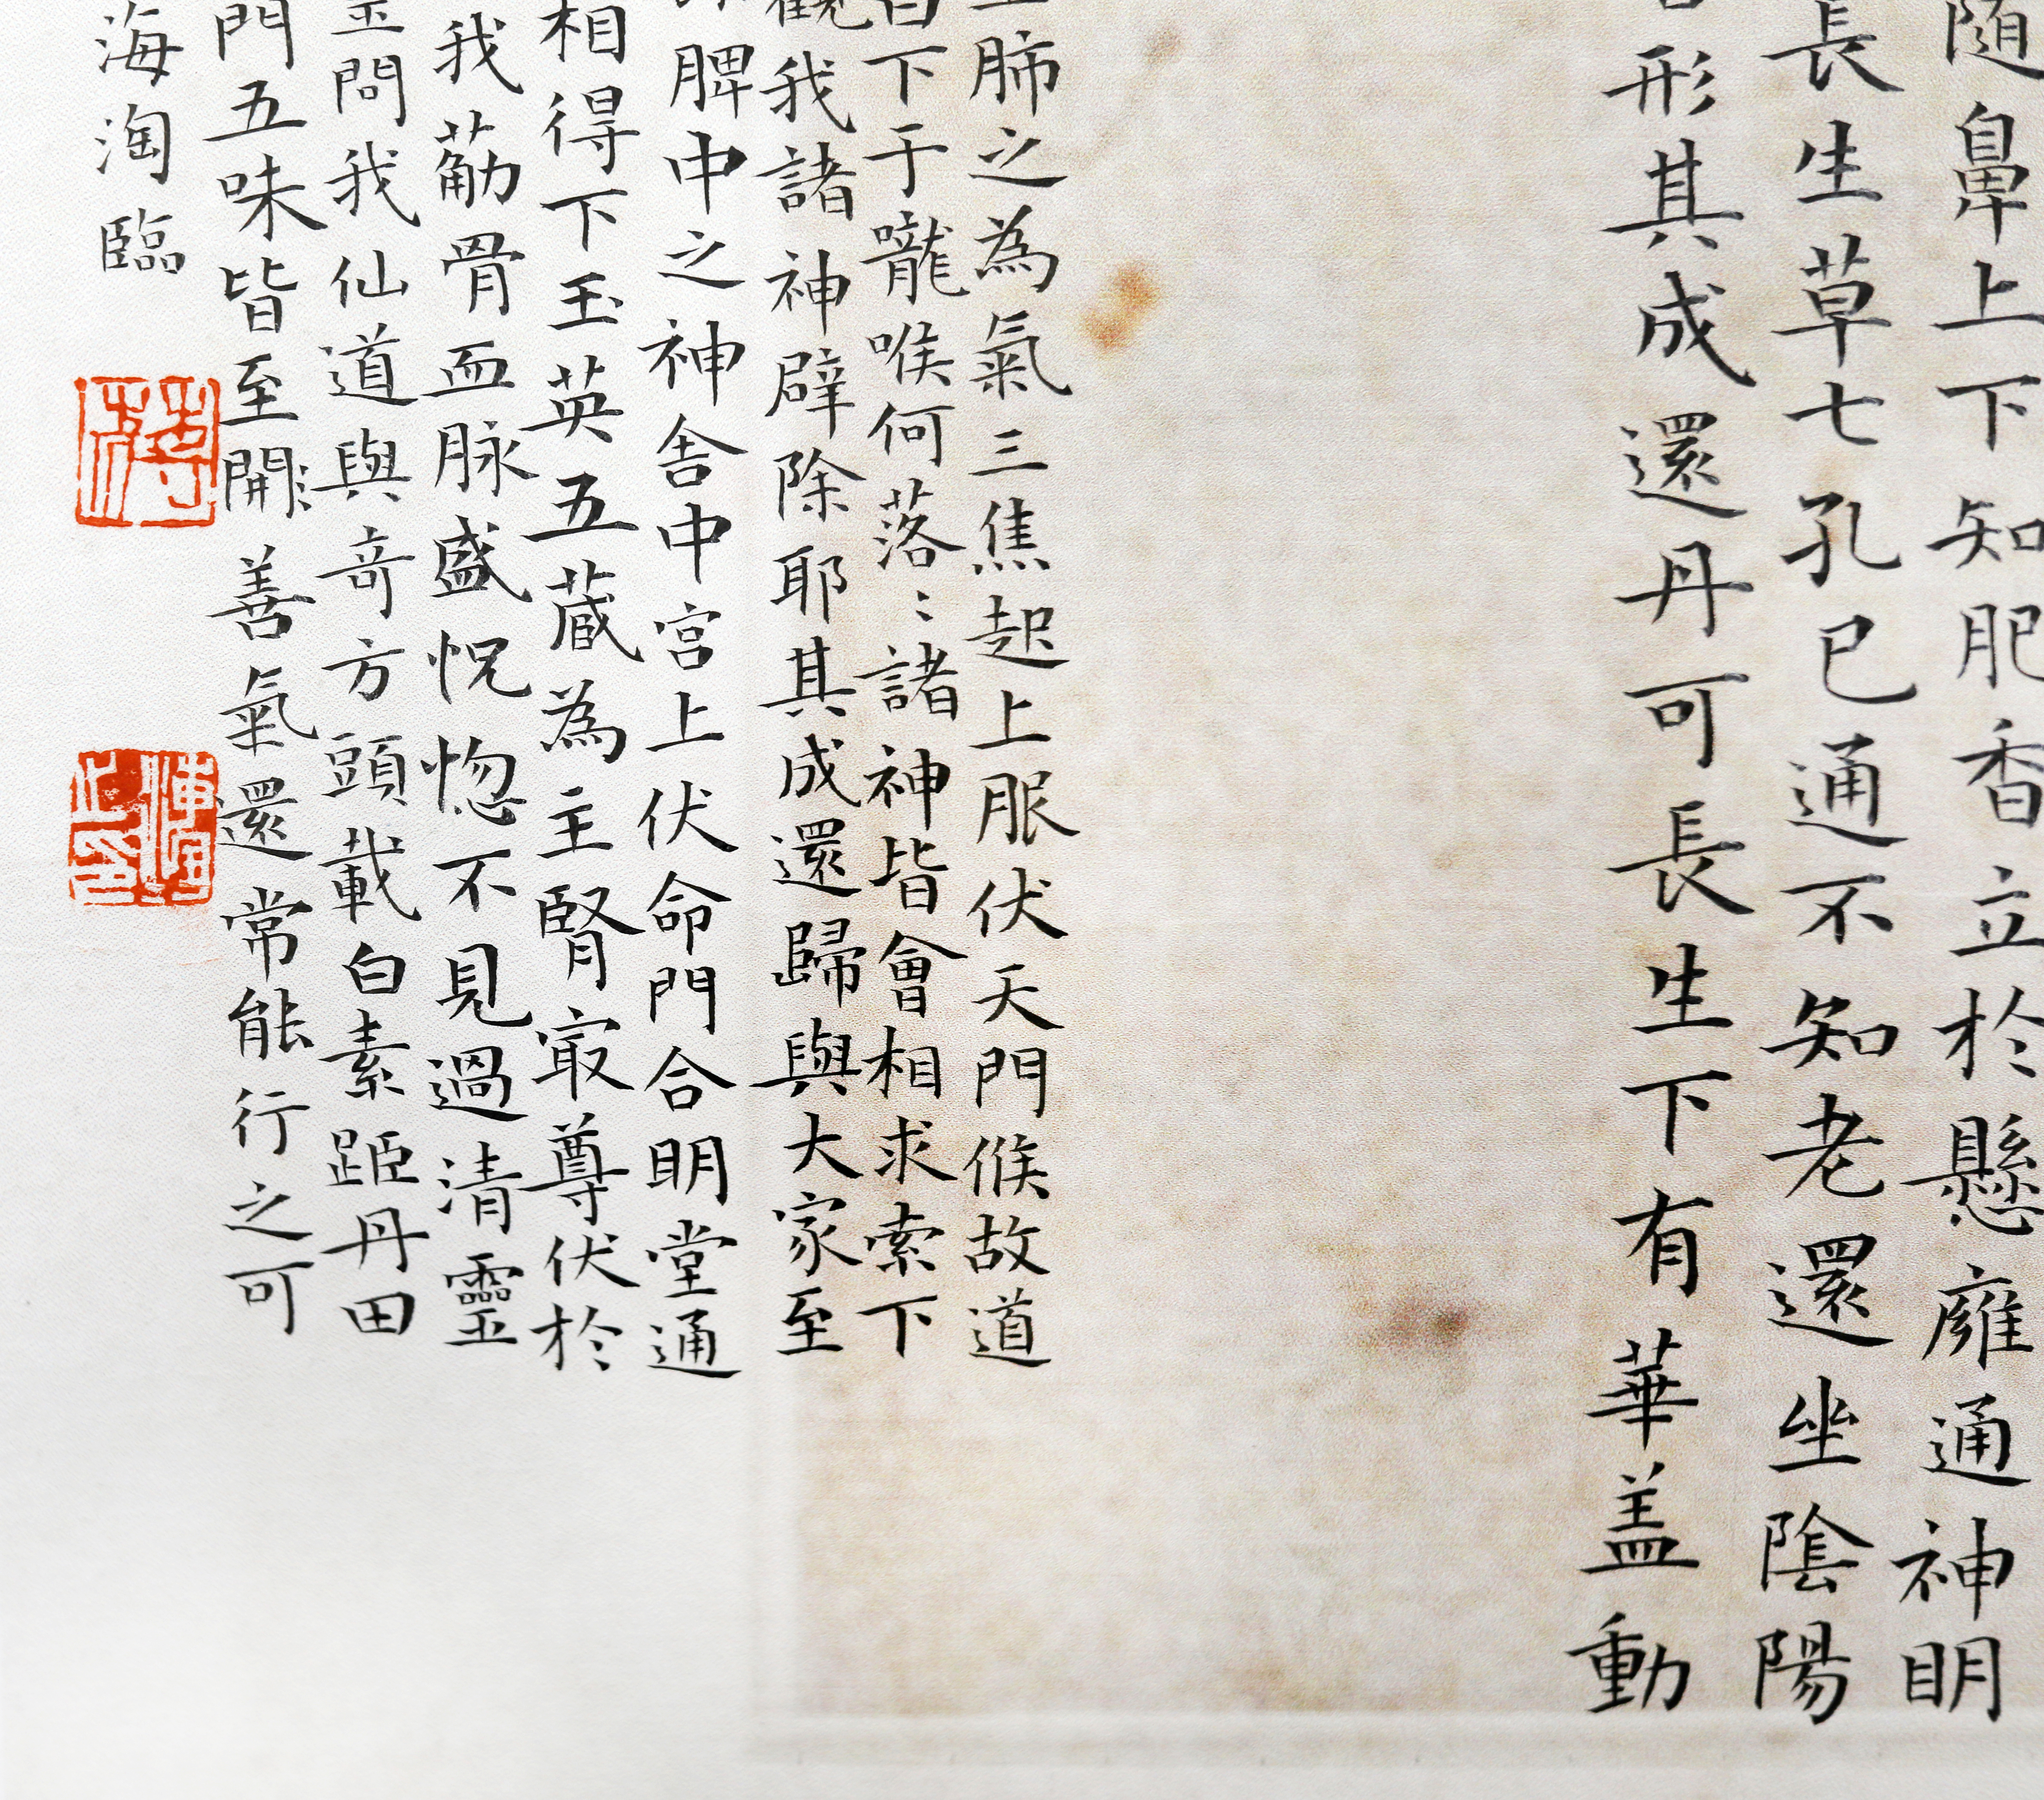 随鼻上下知肥香立於懸癰通神明
長生草七孔已通不知老還坐陰陽
形其成還丹可長生下有華盖動
肺之為氣三焦起上服伏天門候故道
下于嚨喉何落〻諸神皆會相求索下
觀我諸神辟除耶其成還歸與大家至
脾中之神舍中宮上伏命門合明堂通
相得下玉英五藏為主腎冣尊伏於
我荕骨血脉盛怳惚不見過清靈
問我仙道與竒方頭載白素距丹田
門五味皆至開善氣還常能行之可
海淘臨